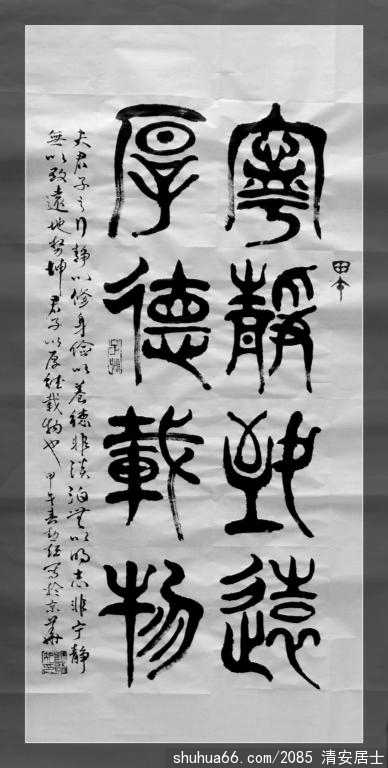 甲午
寧靜致遠
厚德載物
夫君子之行靜以修身儉以養德非淡泊無以明志非宁靜
無以致遠地勢坤君子以厚德載物也甲午春書於京華
shuhua66.com/2085 清安居士